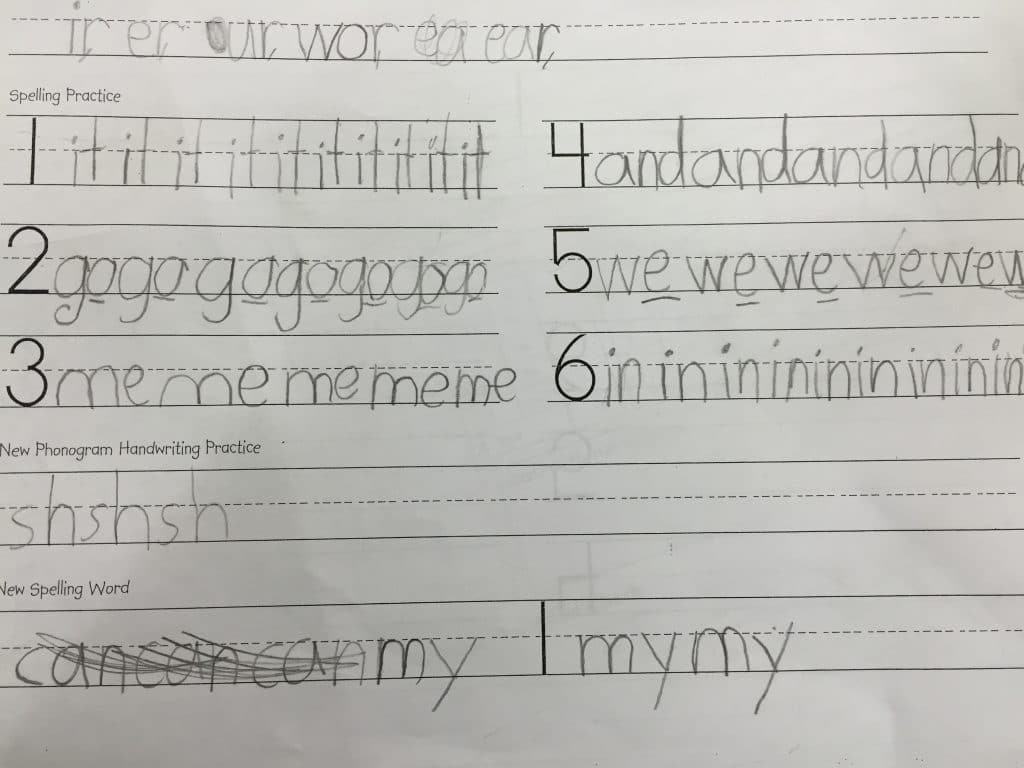 ir er our wor ea ear
Spelling Practice
1 it it it it it it it it it it 4 and and and and an
2 go go go go go go go 5 we we we we we w
3 me me me me me 6 in in in in in in in in in
New Phonogram Handwriting Practice
sh sh sh
New Spelling Word
can can can my 1 my my